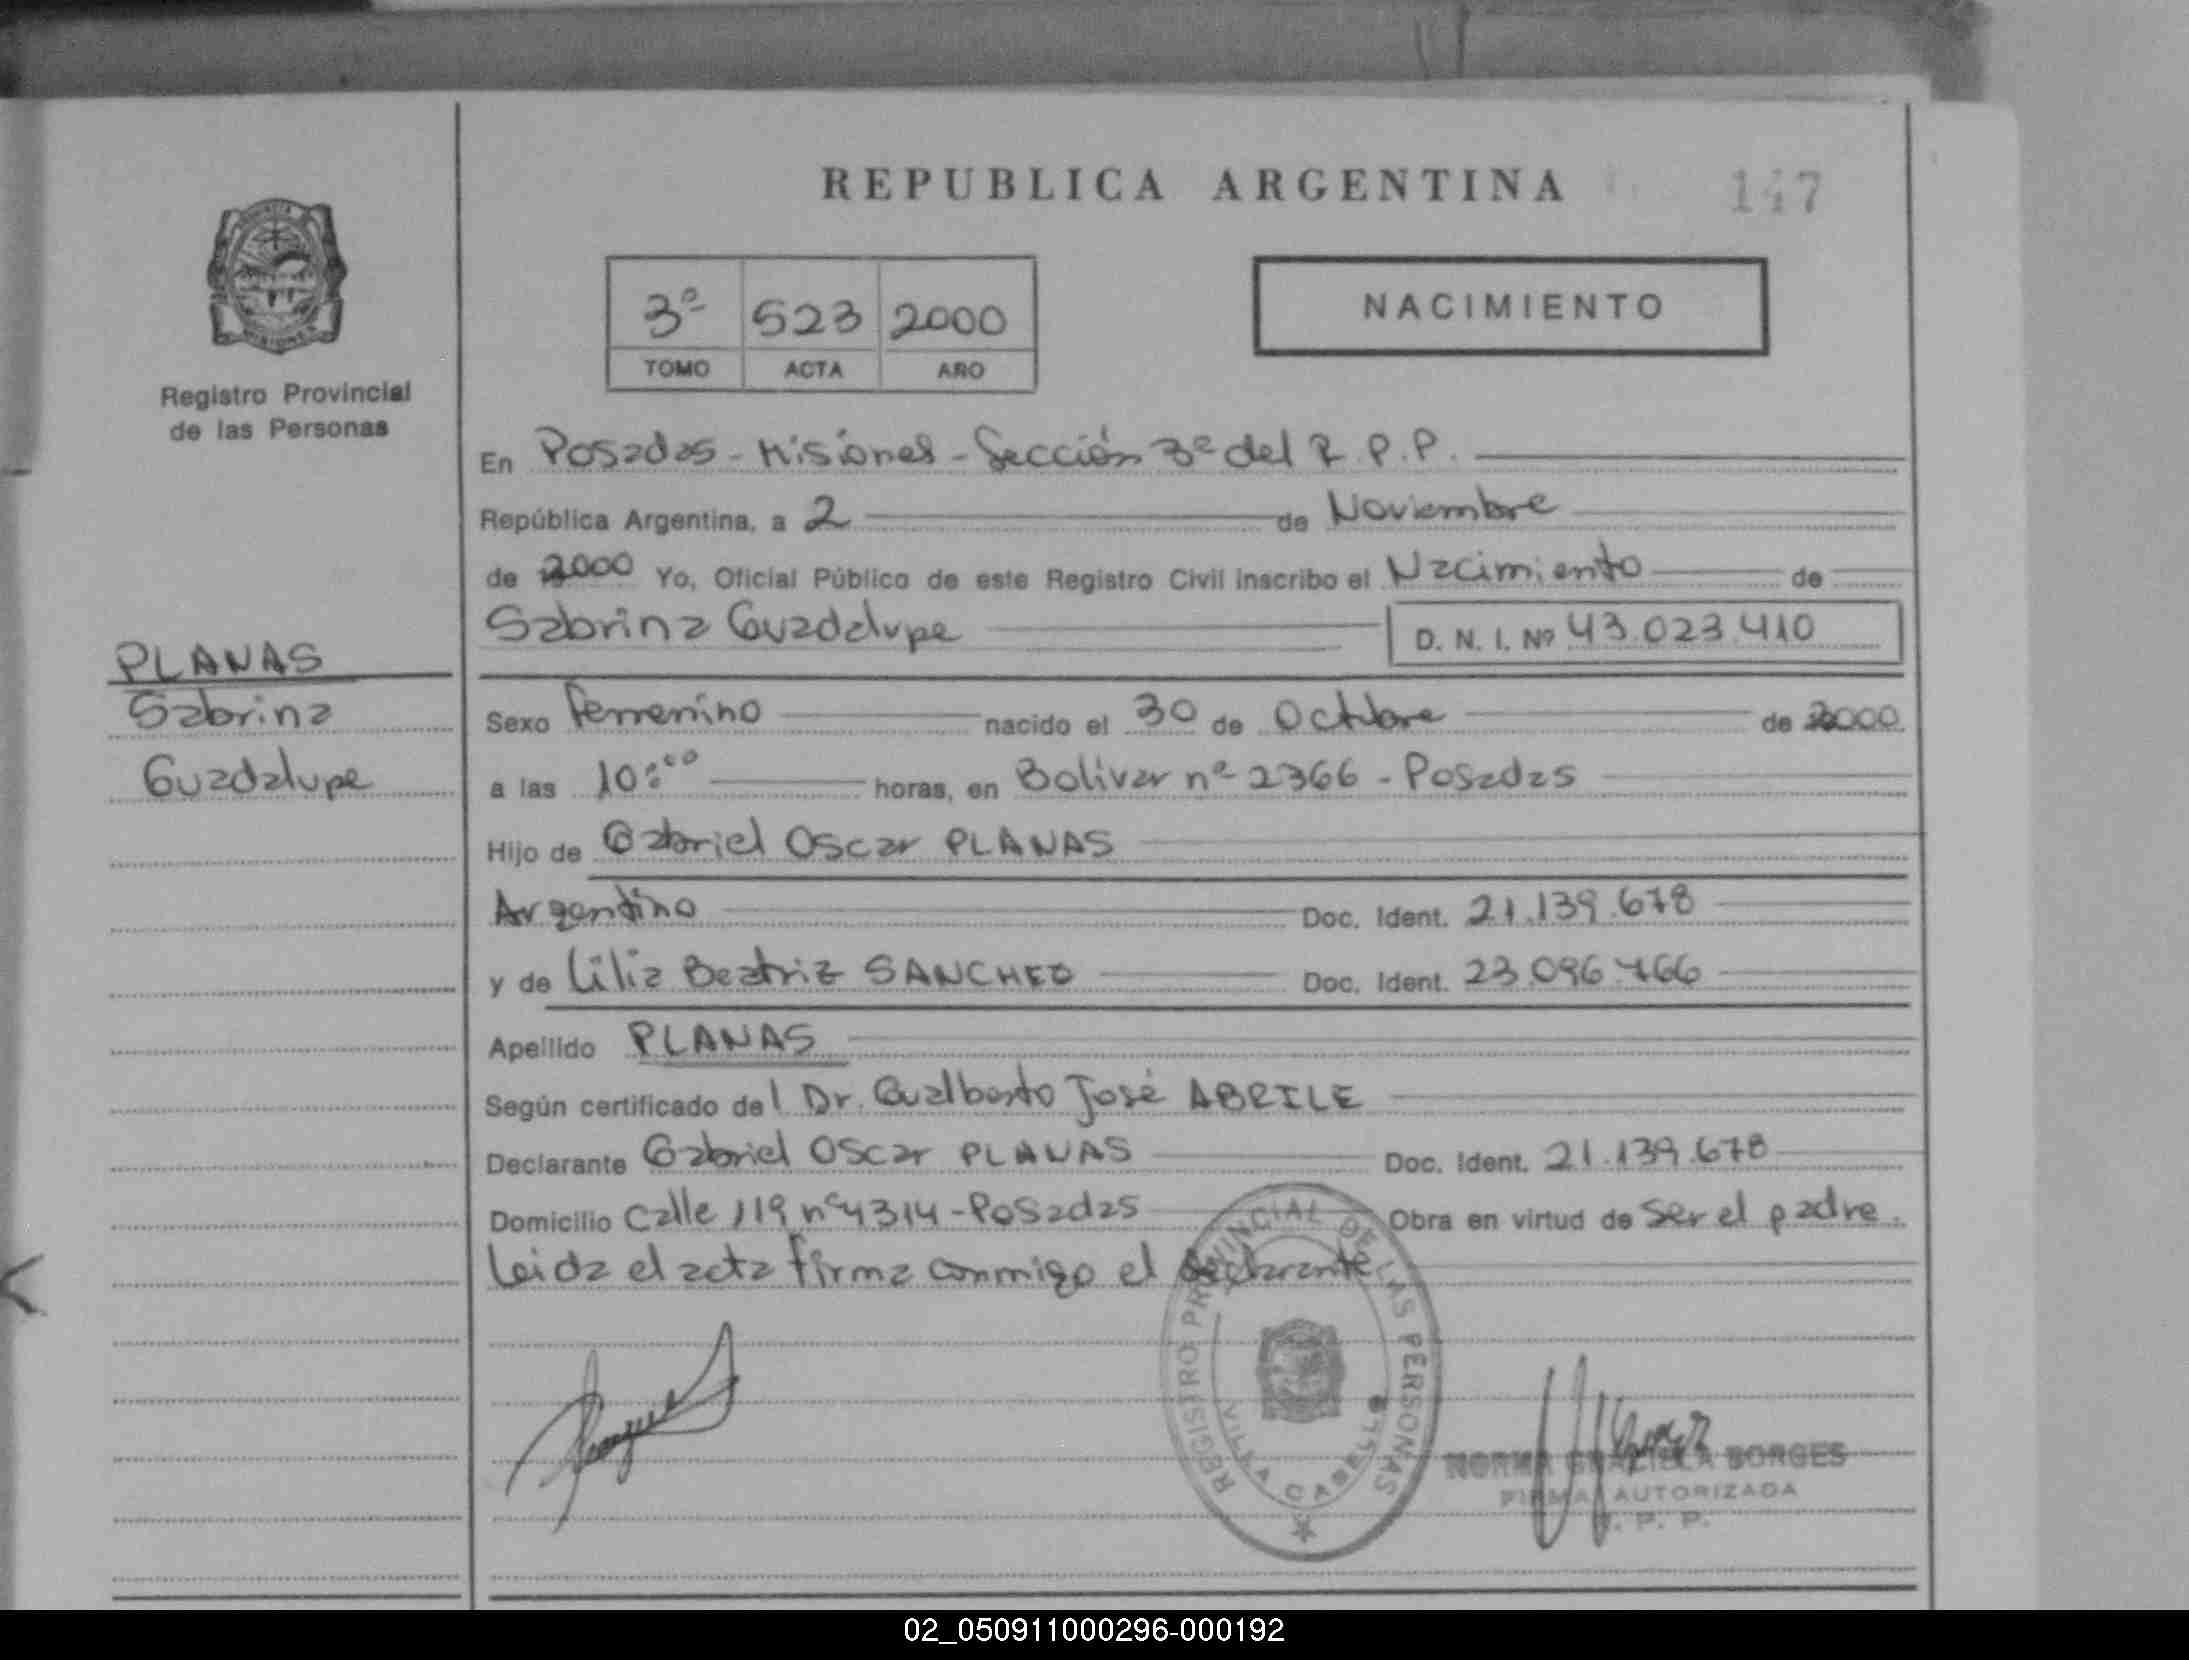 REPUBLICA ARGENTINA
147
MISIONES
Registro Provincial
de las Personas
3º 523 2000
TOMO ACTA AÑO
NACIMIENTO
En Posadas - Misiones - Sección 3ª del R.P.P.
República Argentina, a 2 de Noviembre
de 2000 Yo, Oficial Público de este Registro Civil inscribo el Nacimiento de
Sabrina Guadalupe D. N. I. Nº 43.023.410
PLANAS
Sabrina
Guadalupe
Sexo femenino nacido el 30 de Octubre de 2000
a las 10:00 horas, en Bolivar nº 2366 - Posadas
Hijo de Gabriel Oscar PLANAS
Argentino Doc. Ident. 21.139.678
y de Lilia Beatriz SANCHEZ Doc. Ident. 23.096.466
Apellido PLANAS
Según certificado del Dr. Gualberto José ABRILE
Declarante Gabriel Oscar PLANAS Doc. Ident. 21.139.678
Domicilio Calle 119 nº 4314 - Posadas Obra en virtud de ser el padre.
Leida el acta firma conmigo el declarante
REGISTRO PROVINCIAL DE LAS PERSONAS
VILLA CABELLO
NORMA GRACIELA BORGES
FIRMA AUTORIZADA
R. P. P.
02_050911000296-000192